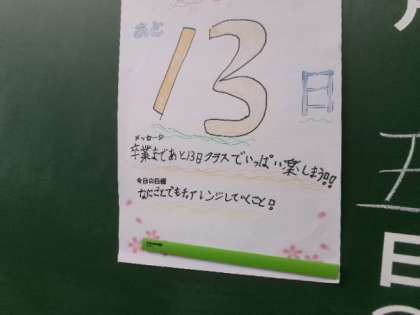 あと
13
日
メッセージ
卒業まであと13日クラスでいっぱい楽しもう!!
今日の目標
なにごとでもチャレンジしていくこと!
日